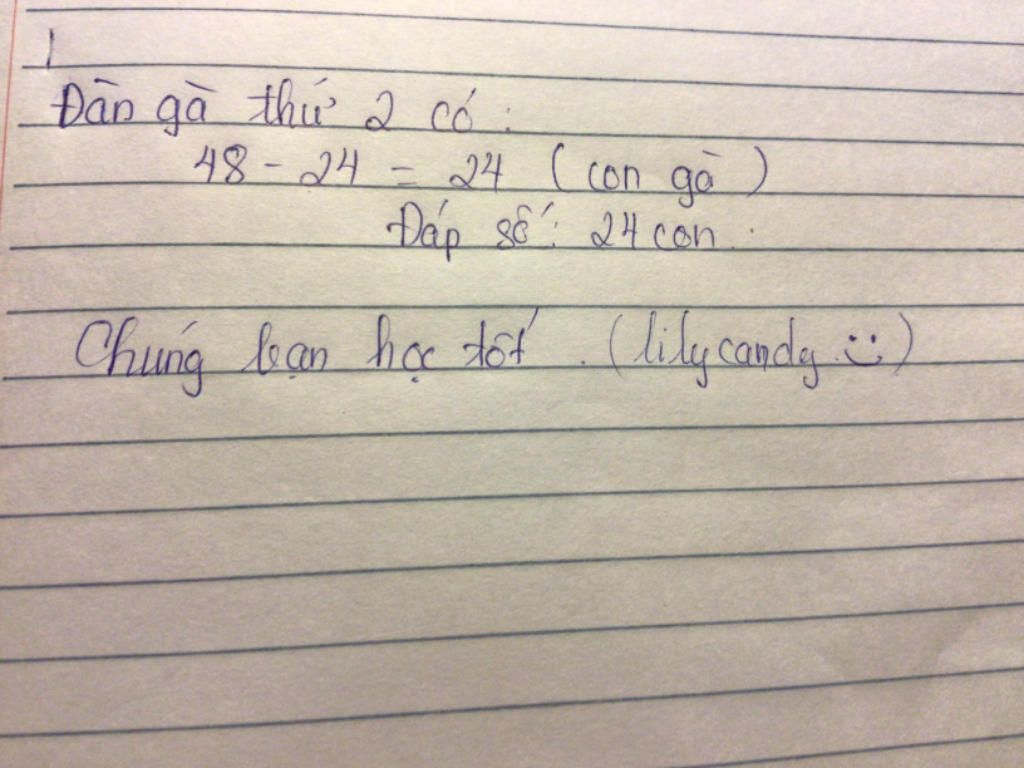 Đàn gà thứ 2 có:
48 - 24 = 24 (con gà)
Đáp số: 24 con.
Chúng bạn học tốt. (lilycandy :))